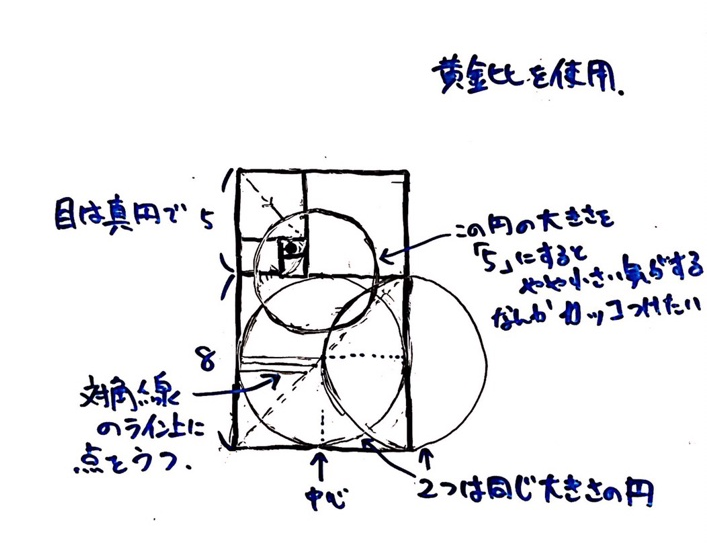 黄金比を使用.
目は真円で
5
この円の大きさを
「5」にすると
やや小さい気がする
なんかカッコつけたい
8
対角線
のライン上に
点をうつ.
中心
2つは同じ大きさの円